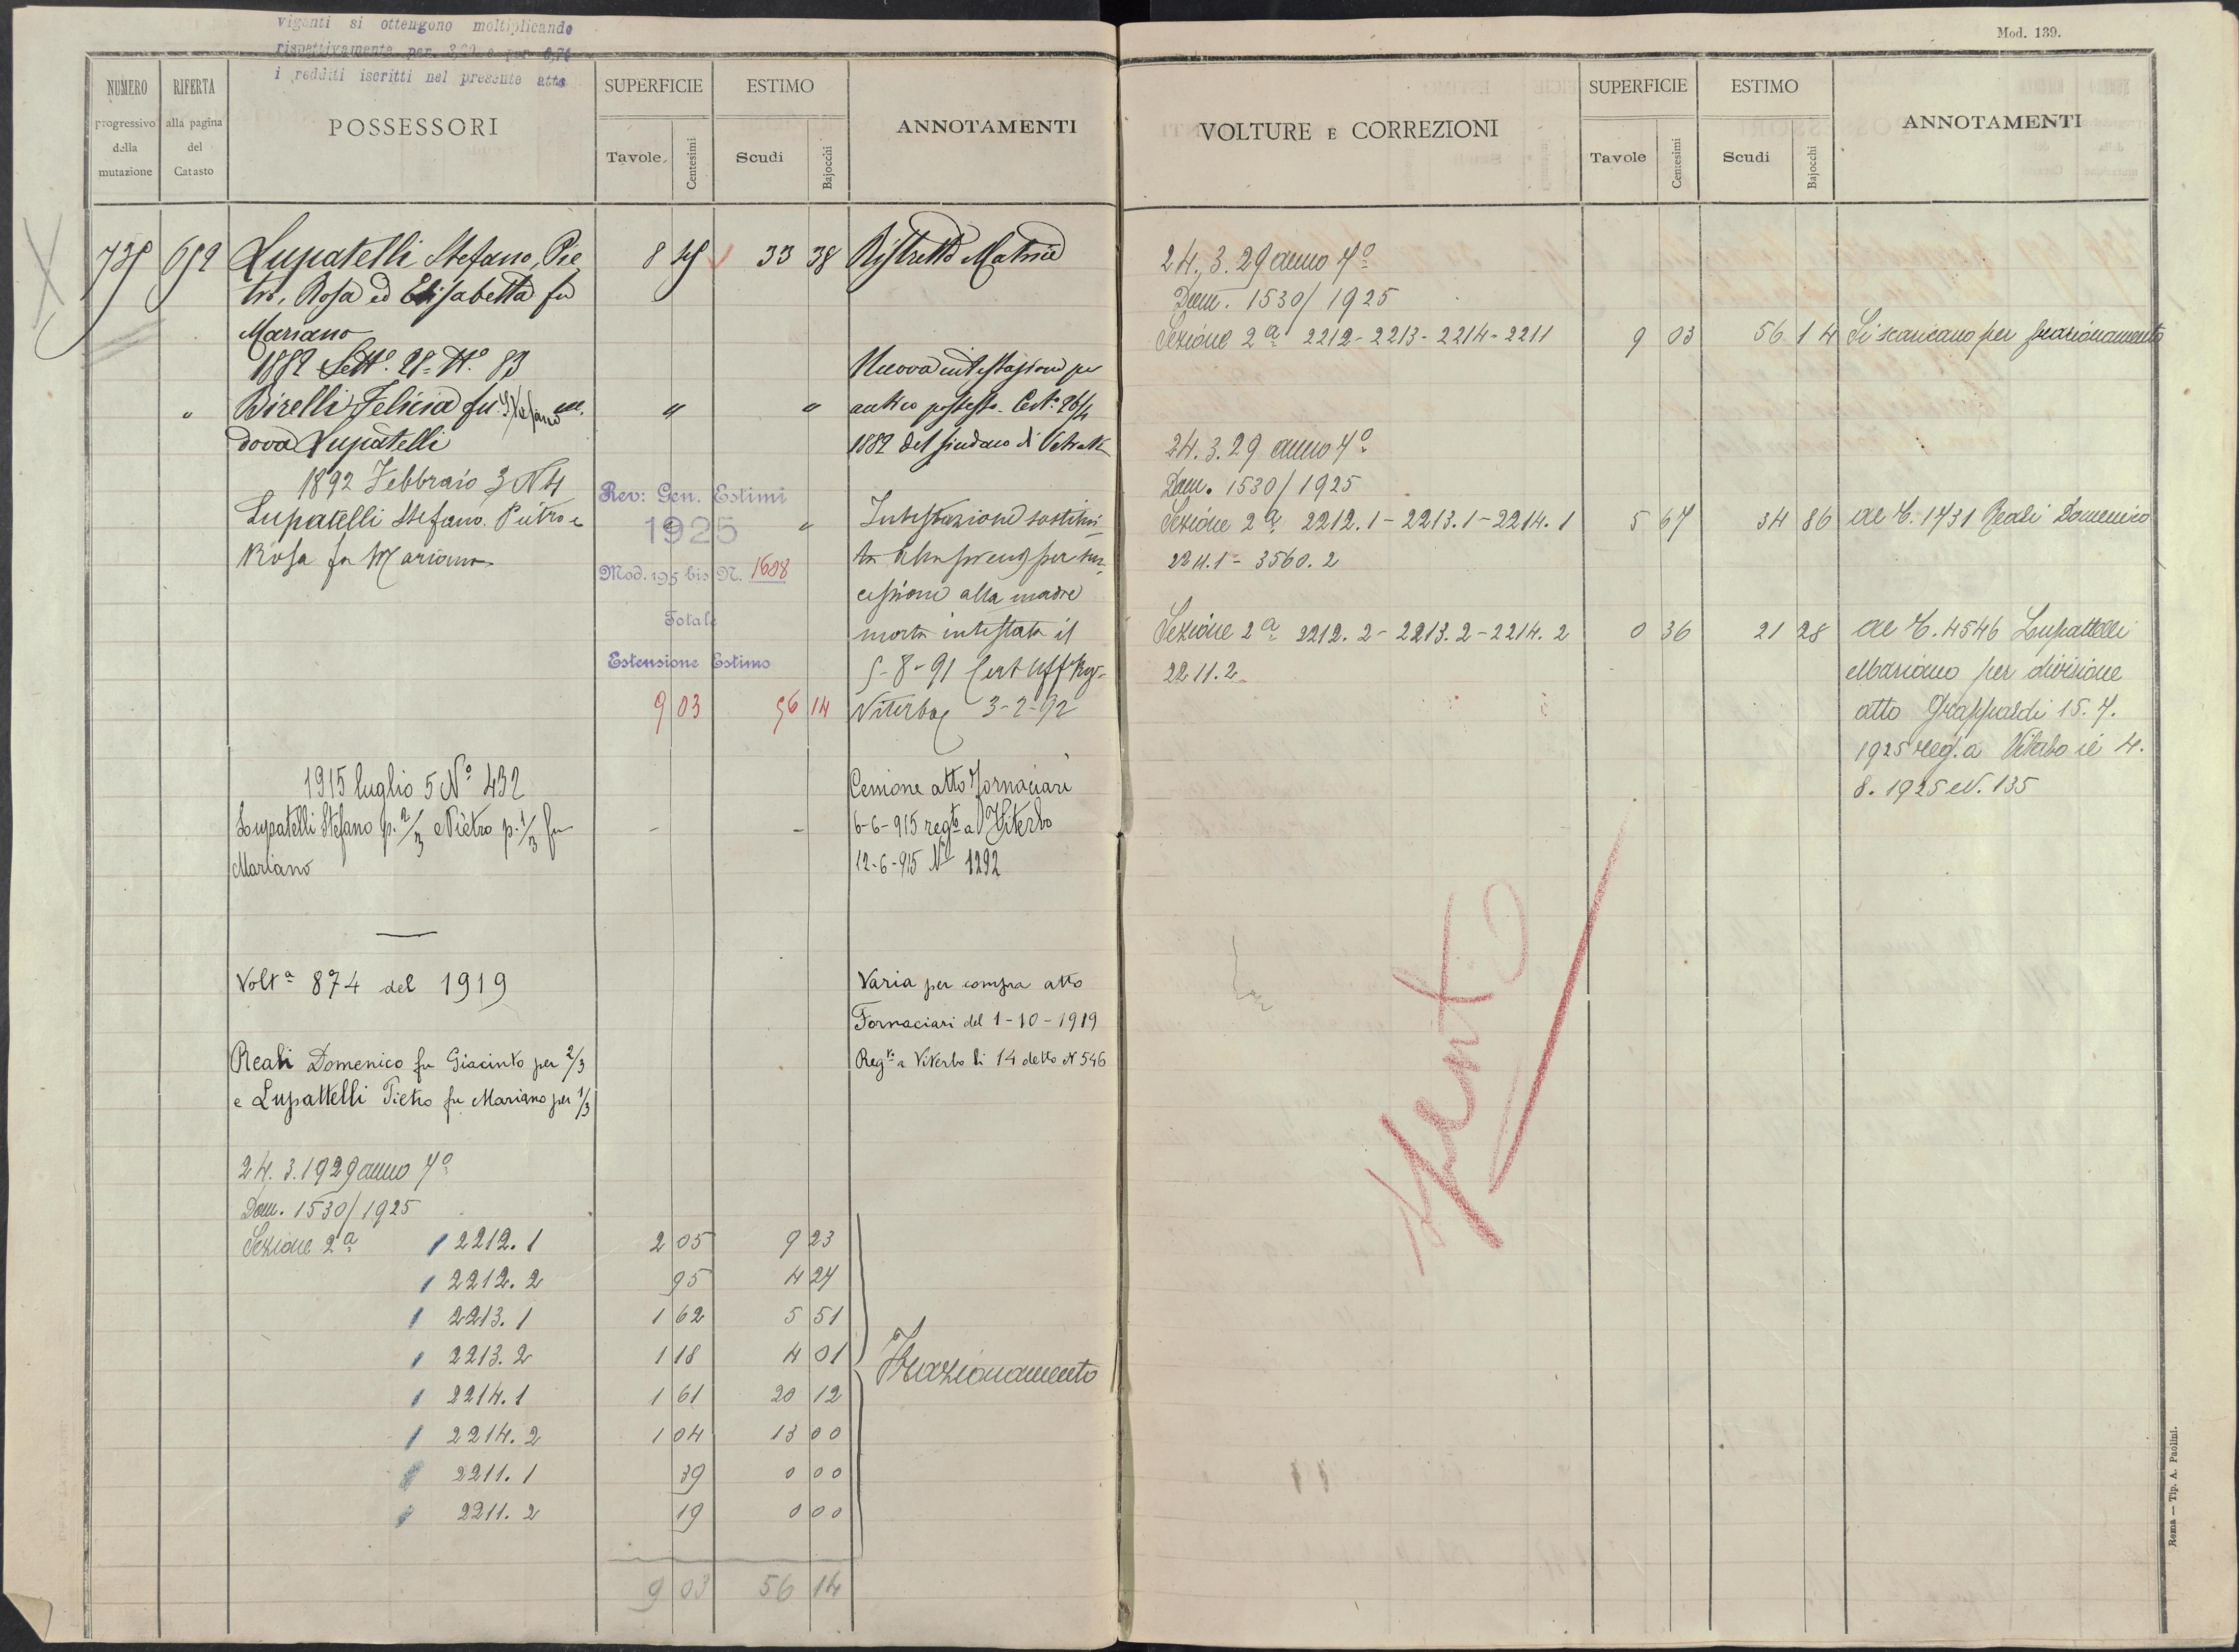 viganti si ottengono moltiplicando
rispettivamente per. 3,20 e per 0,74
i redditi iscritti nel presente atto
NUMERO
progressivo
della
mutazione
RIFERTA
alla pagina
del
Catasto
POSSESSORI
SUPERFICIE
Tavole
Centesimi
ESTIMO
Scudi
Bajocchi
ANNOTAMENTI
Lupatelli Stefano, Pie 33 38 Ristretto Matrice
tro, Rosa ed Elisabetta fu
Mariano
1882 Sett. 28 N. 83 Nuova intestazione per
" Birelli Felicia fu Stefano ve. " " antico possesso. Cert. 26/4
dova Lupatelli 1882 del sindaco di
1892 Febbraio 3 N 4
Rev: Gen. Estimi
1925
Lupatelli Stefano Pietro e " Intestazione sostitui
Rosa fu Mariano
Mod. 195 bis N. 1608
ta per suc
cessione alla madre
Totale
morta intestata il
Estensione Estimo
5-8-91 Cert Uff Reg.
9 03 56 14 Viterbo 3-2-92
1915 luglio 5 N° 432 Cessione atto Fornaciari
Lupatelli Stefano p. 2/3 e Pietro p. 1/3 fu - - 6-6-915 regto a Viterbo
Mariano 12-6-915 N° 1292
Volta 874 del 1919 Varia per compra atto
Fornaciari del 1-10-1919
Reali Domenico fu Giacinto per 2/3 Regto a Viterbo li 14 detto N 546
e Lupattelli Pietro fu Mariano per 1/3
24.3.1929 anno 7°
Dom. 1530/1925
Sezione 2a 2212.1 2 05 9 23
2212.2 95 4 24
2213.1 1 62 5 51
2213.2 1 18 4 01
Frazionamento
2214.1 1 61 20 12
2214.2 1 04 13 00
2211.1 39 0 00
2211.2 19 0 00
9 03 56 14
Mod. 139.
VOLTURE E CORREZIONI
SUPERFICIE
Tavole
Centesimi
ESTIMO
Scudi
Bajocchi
ANNOTAMENTI
24.3.29 anno 7°
Dom. 1530/1925
Sezione 2a 2212-2213-2214-2211 9 03 56 14 Si scaricano per frazionamento
24.3.29 anno 7°
Dom. 1530/1925
Sezione 2a 2212.1-2213.1-2214.1 5 67 34 86 al C. 1731 Reali Domenico
2211.1-3560.2
Sezione 2a 2212.2-2213.2-2214.2 0 36 21 28 al C. 4546 Lupattelli
2211.2 Mariano per divisione
atto Grappaldi 15.7.
1925 reg. a Viterbo il 4.
8.1925 N. 135
Spento
Roma — Tip. A. Paolini.